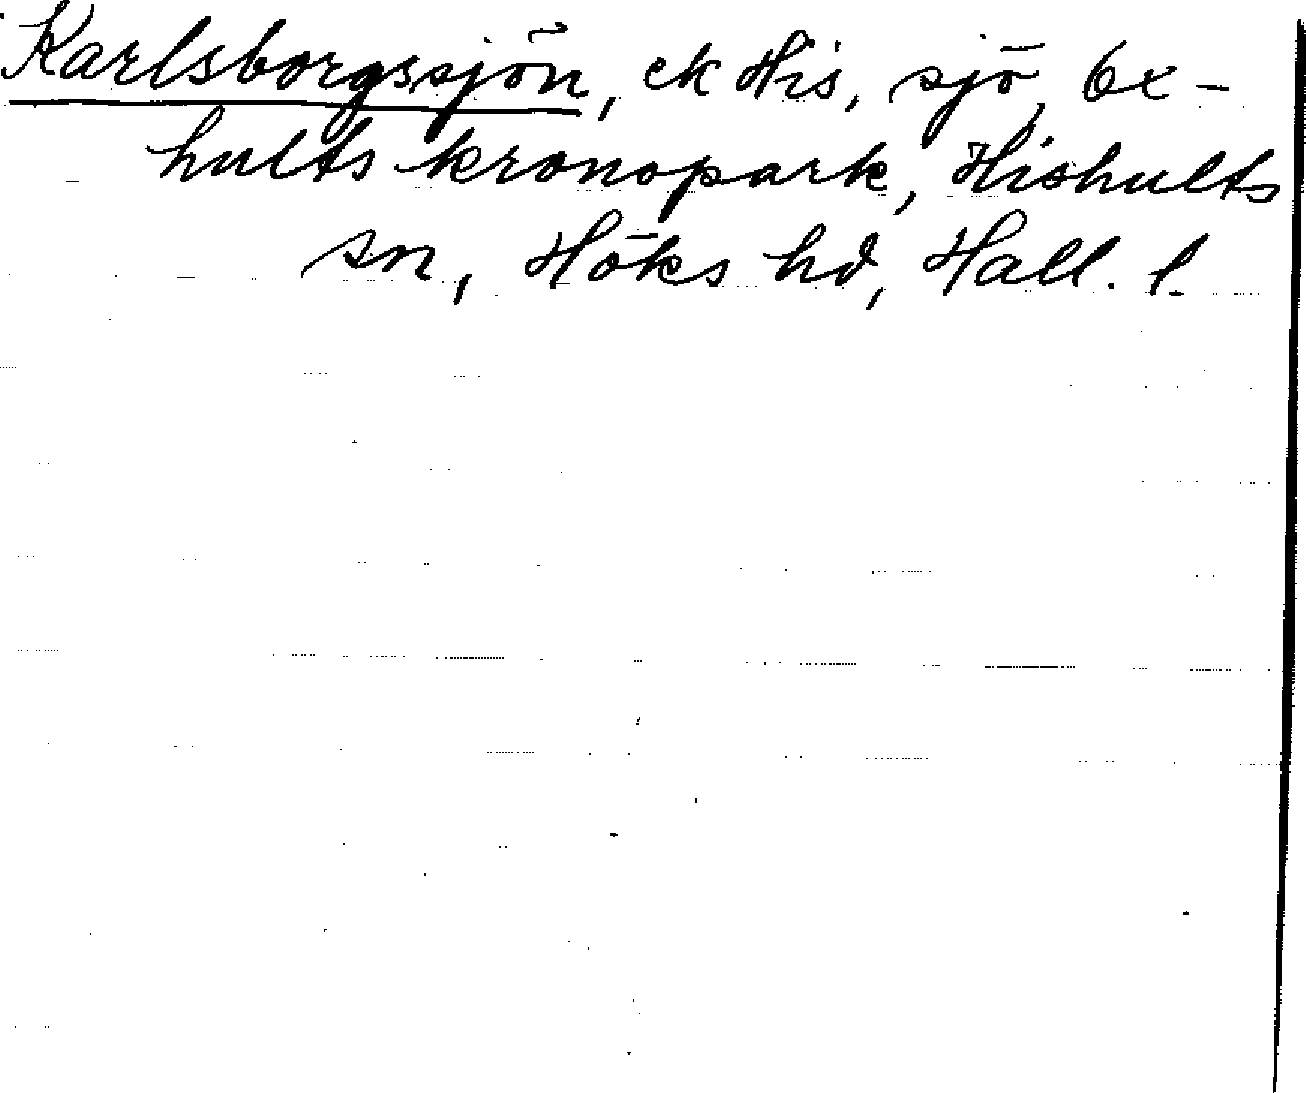 Karlsborgssjön, ek His, sjö, Ox-
hults kronopark, Hishults
sn, Höks hd, Hall. l.